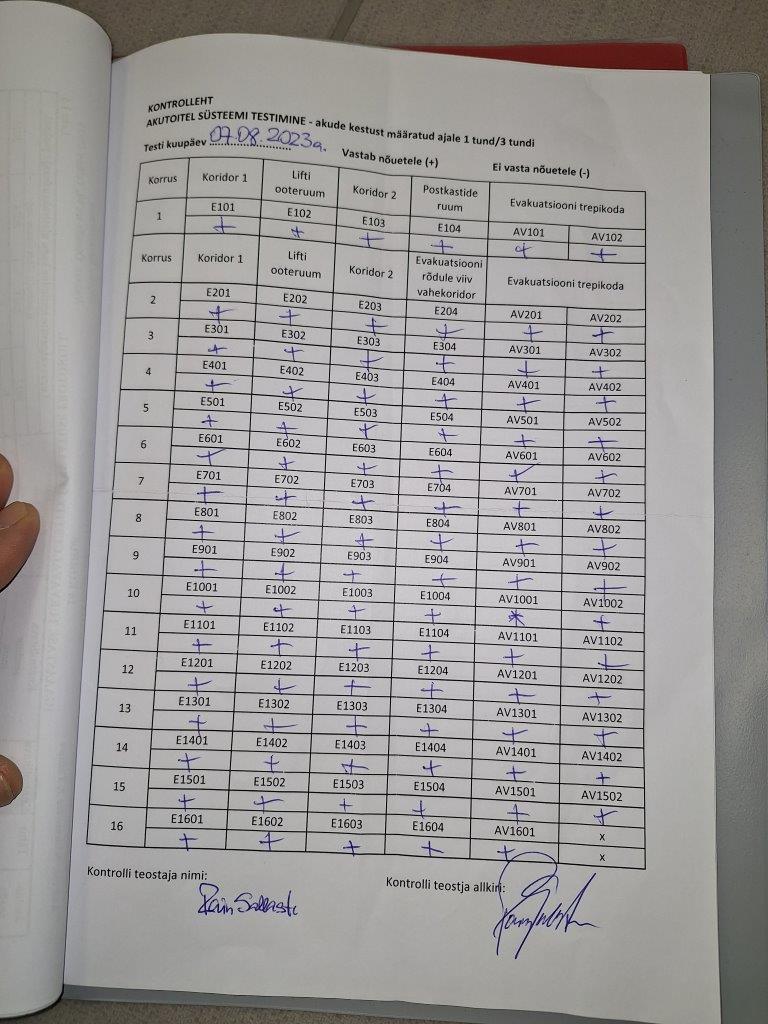 KONTROLLEHT
AKUTOITEL SÜSTEEMI TESTIMINE - akude kestust määratud ajale 1 tund/3 tundi
Testi kuupäev 07.08.2023a. Vastab nõuetele (+) Ei vasta nõuetele (-)
Korrus Koridor 1 Lifti ooteruum Koridor 2 Postkastide ruum Evakuatsiooni trepikoda
1 E101 E102 E103 E104 AV101 AV102
+ + + + + +
Korrus Koridor 1 Lifti ooteruum Koridor 2 Evakuatsiooni rõdule viiv vahekoridor Evakuatsiooni trepikoda
2 E201 E202 E203 E204 AV201 AV202
+ + + + + +
3 E301 E302 E303 E304 AV301 AV302
+ + + + + +
4 E401 E402 E403 E404 AV401 AV402
+ + + + + +
5 E501 E502 E503 E504 AV501 AV502
+ + + + + +
6 E601 E602 E603 E604 AV601 AV602
+ + + + + +
7 E701 E702 E703 E704 AV701 AV702
+ + + + + +
8 E801 E802 E803 E804 AV801 AV802
+ + + + + +
9 E901 E902 E903 E904 AV901 AV902
+ + + + + +
10 E1001 E1002 E1003 E1004 AV1001 AV1002
+ + + + * +
11 E1101 E1102 E1103 E1104 AV1101 AV1102
+ + + + + +
12 E1201 E1202 E1203 E1204 AV1201 AV1202
+ + + + + +
13 E1301 E1302 E1303 E1304 AV1301 AV1302
+ + + + + +
14 E1401 E1402 E1403 E1404 AV1401 AV1402
+ + + + + +
15 E1501 E1502 E1503 E1504 AV1501 AV1502
+ + + + + +
16 E1601 E1602 E1603 E1604 AV1601 x
+ + + + + x
Kontrolli teostaja nimi: Kontrolli teostja allkiri: